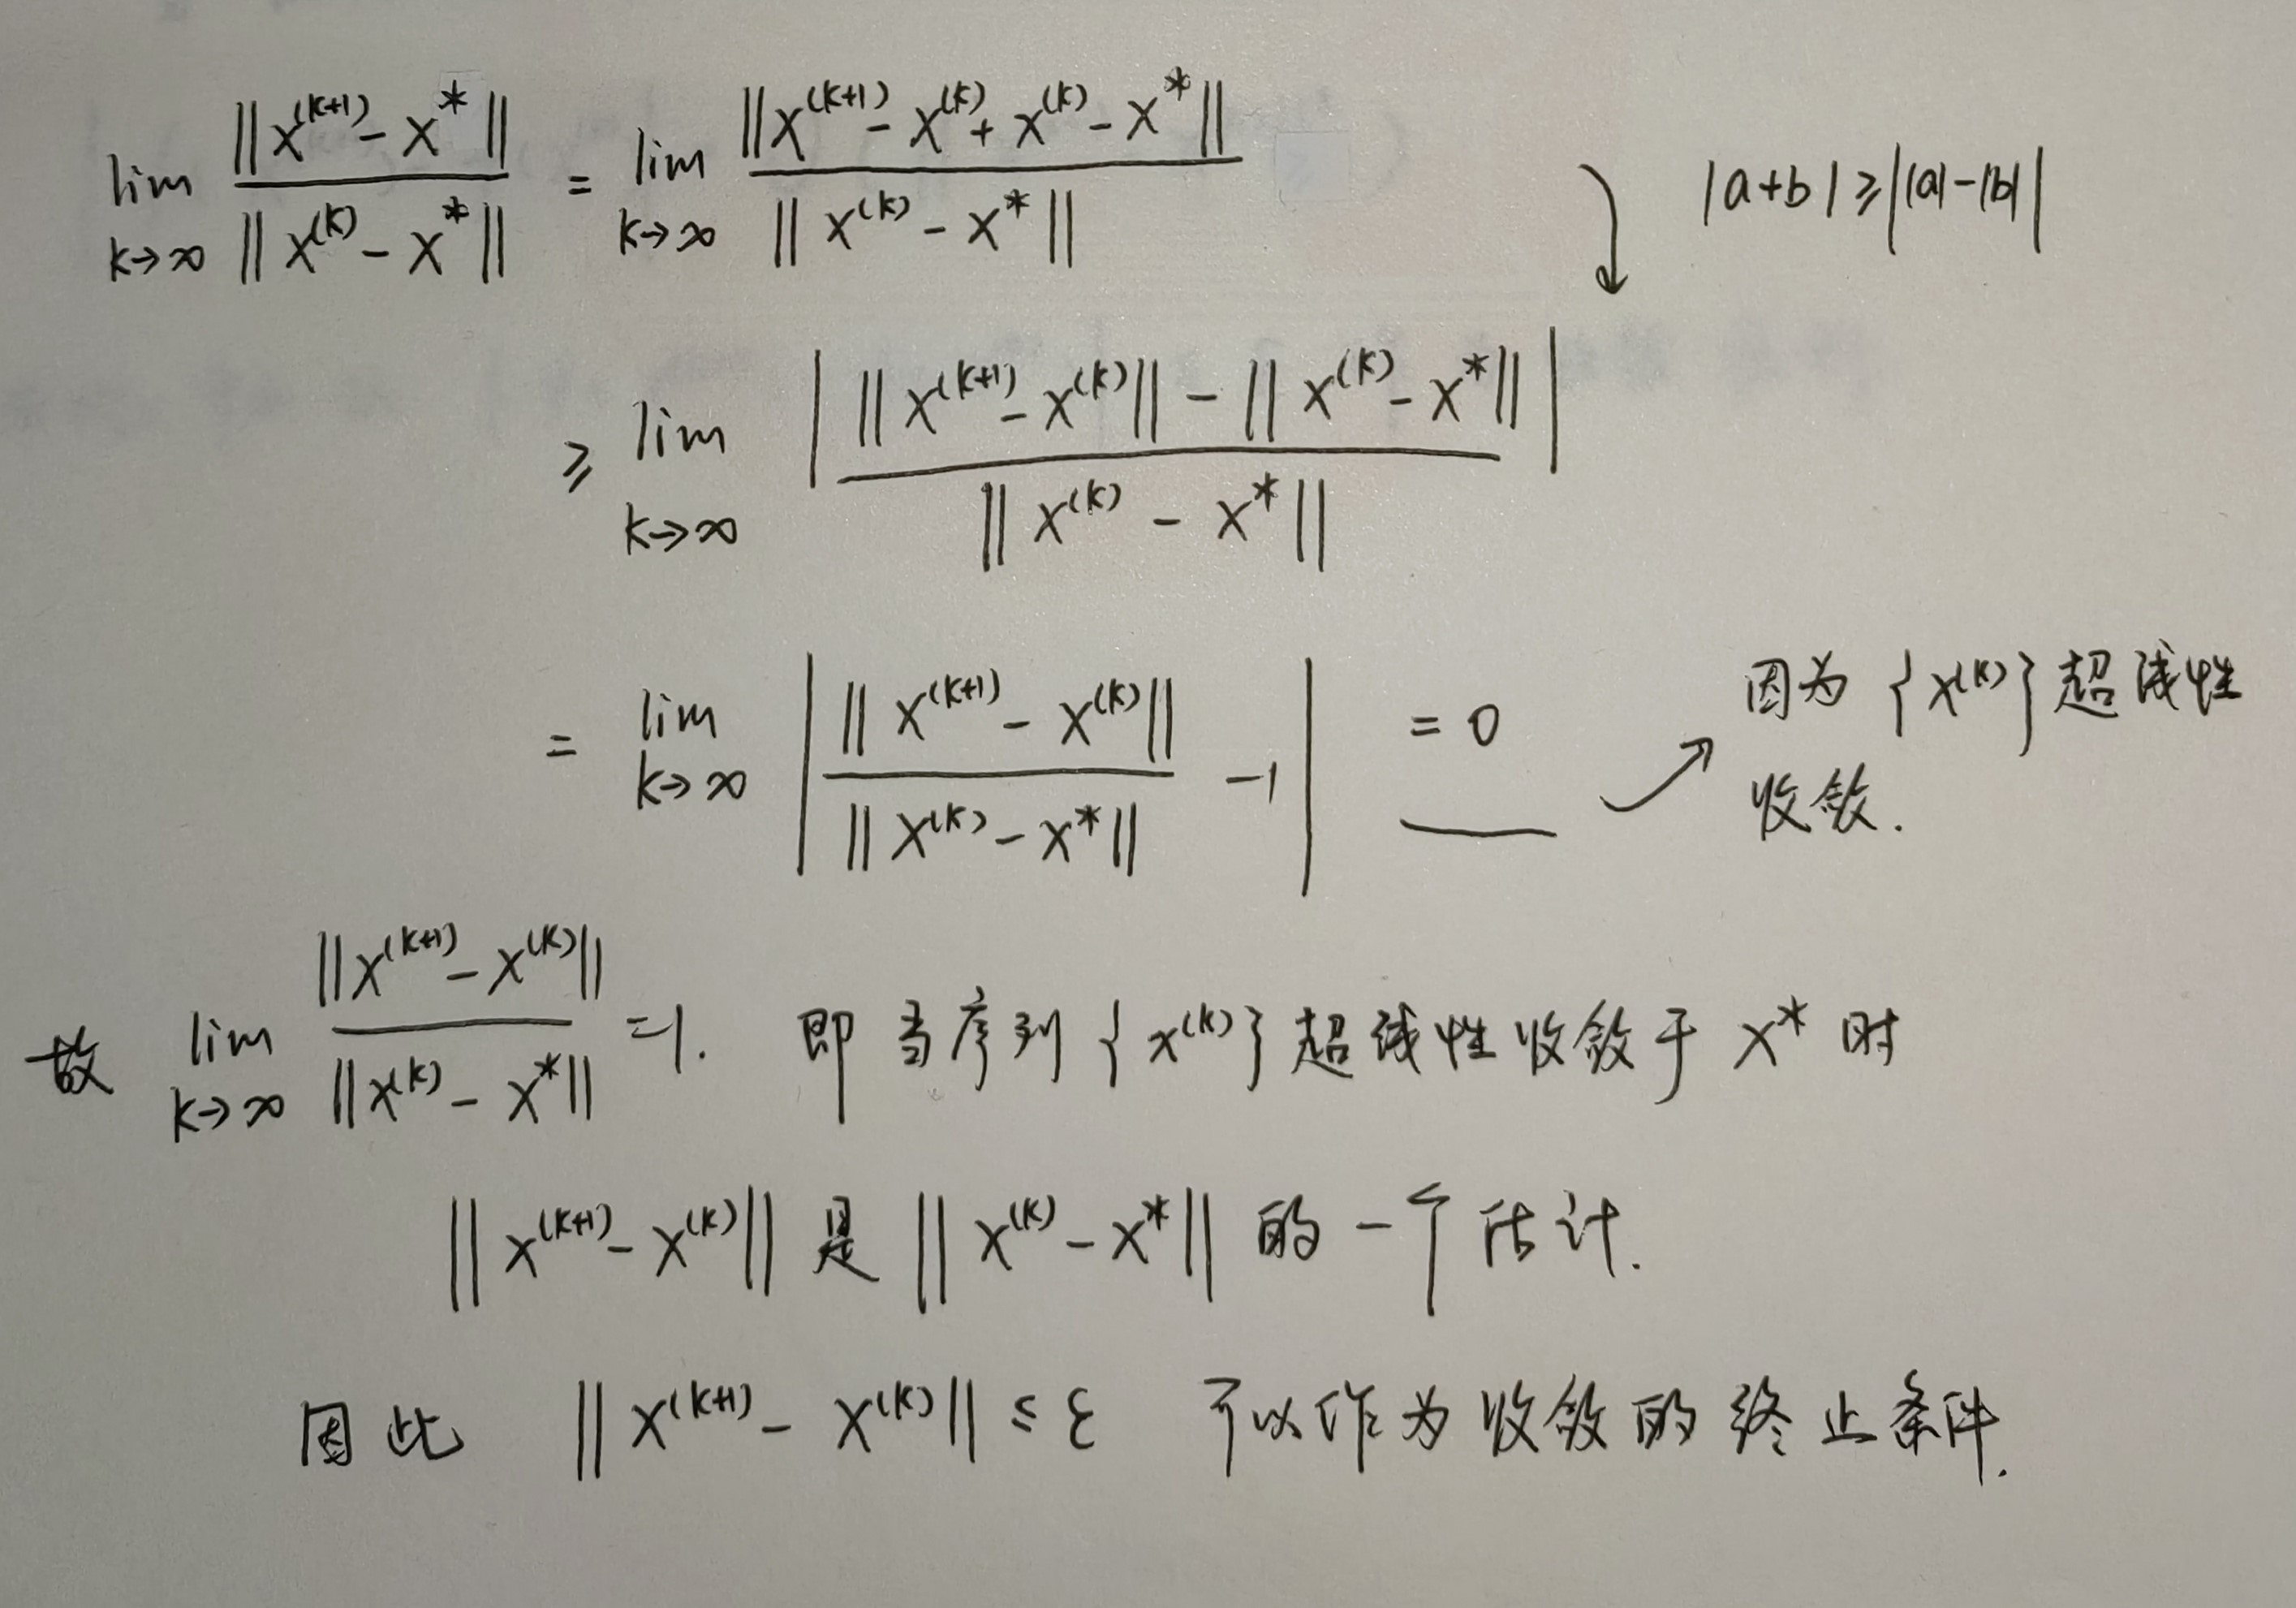 lim_{k→∞} ||x^{(k+1)} - x^*|| / ||x^{(k)} - x^*|| = lim_{k→∞} ||x^{(k+1)} - x^{(k)} + x^{(k)} - x^*|| / ||x^{(k)} - x^*||
|a+b| ≥ ||a|-|b||
≥ lim_{k→∞} | (||x^{(k+1)} - x^{(k)}|| - ||x^{(k)} - x^*||) / ||x^{(k)} - x^*|| |
= lim_{k→∞} | ||x^{(k+1)} - x^{(k)}|| / ||x^{(k)} - x^*|| - 1 | = 0
因为 {x^{(k)}} 超线性
收敛.
故 lim_{k→∞} ||x^{(k+1)} - x^{(k)}|| / ||x^{(k)} - x^*|| = 1. 即当序列 {x^{(k)}} 超线性收敛于 x^* 时
||x^{(k+1)} - x^{(k)}|| 是 ||x^{(k)} - x^*|| 的一个估计.
因此 ||x^{(k+1)} - x^{(k)}|| ≤ ε 可以作为收敛的终止条件.